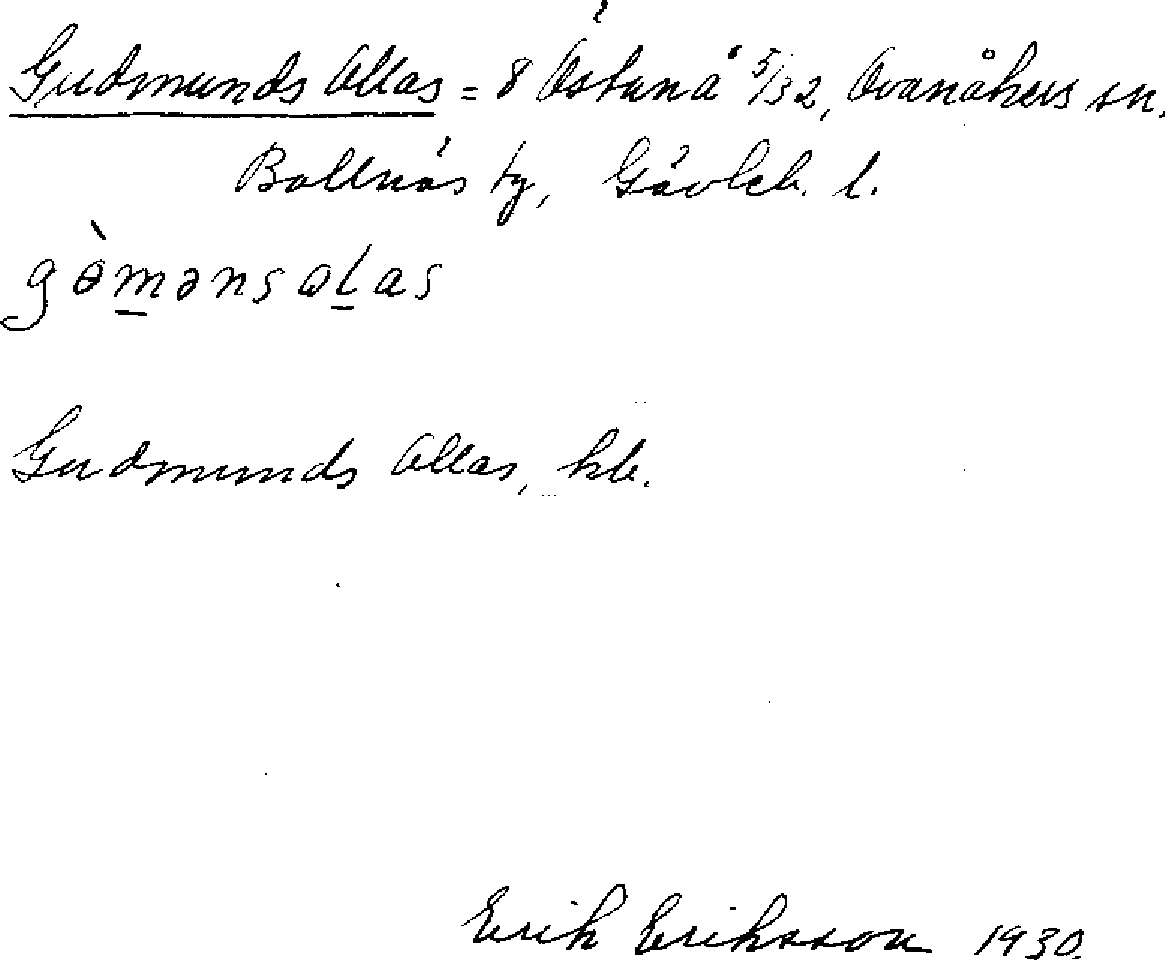 Gudmunds Ollas = 8 Östanå 5/32, Ovanåkers sn.
Bollnäs tg, Gävleb. l.
gɵ̀mənsɷlas
Gudmunds Ollas, hb.
Erik Eriksson 1930.